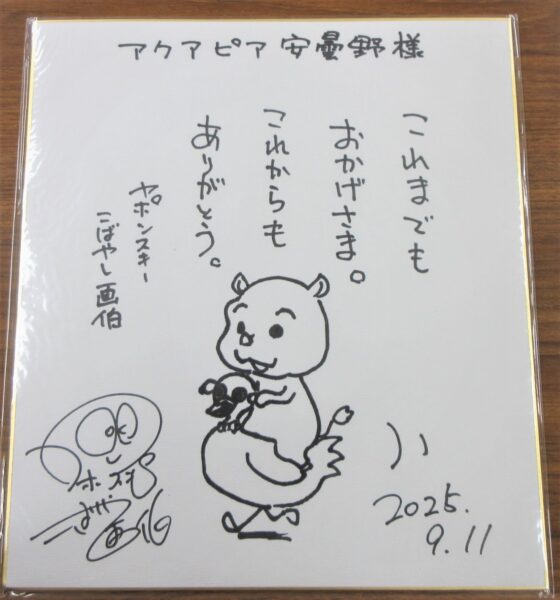 アクアピア安曇野様
これまでも
おかげさま。
これからも
ありがとう。
ヤポンスキー
こばやし画伯
2025.
9.11